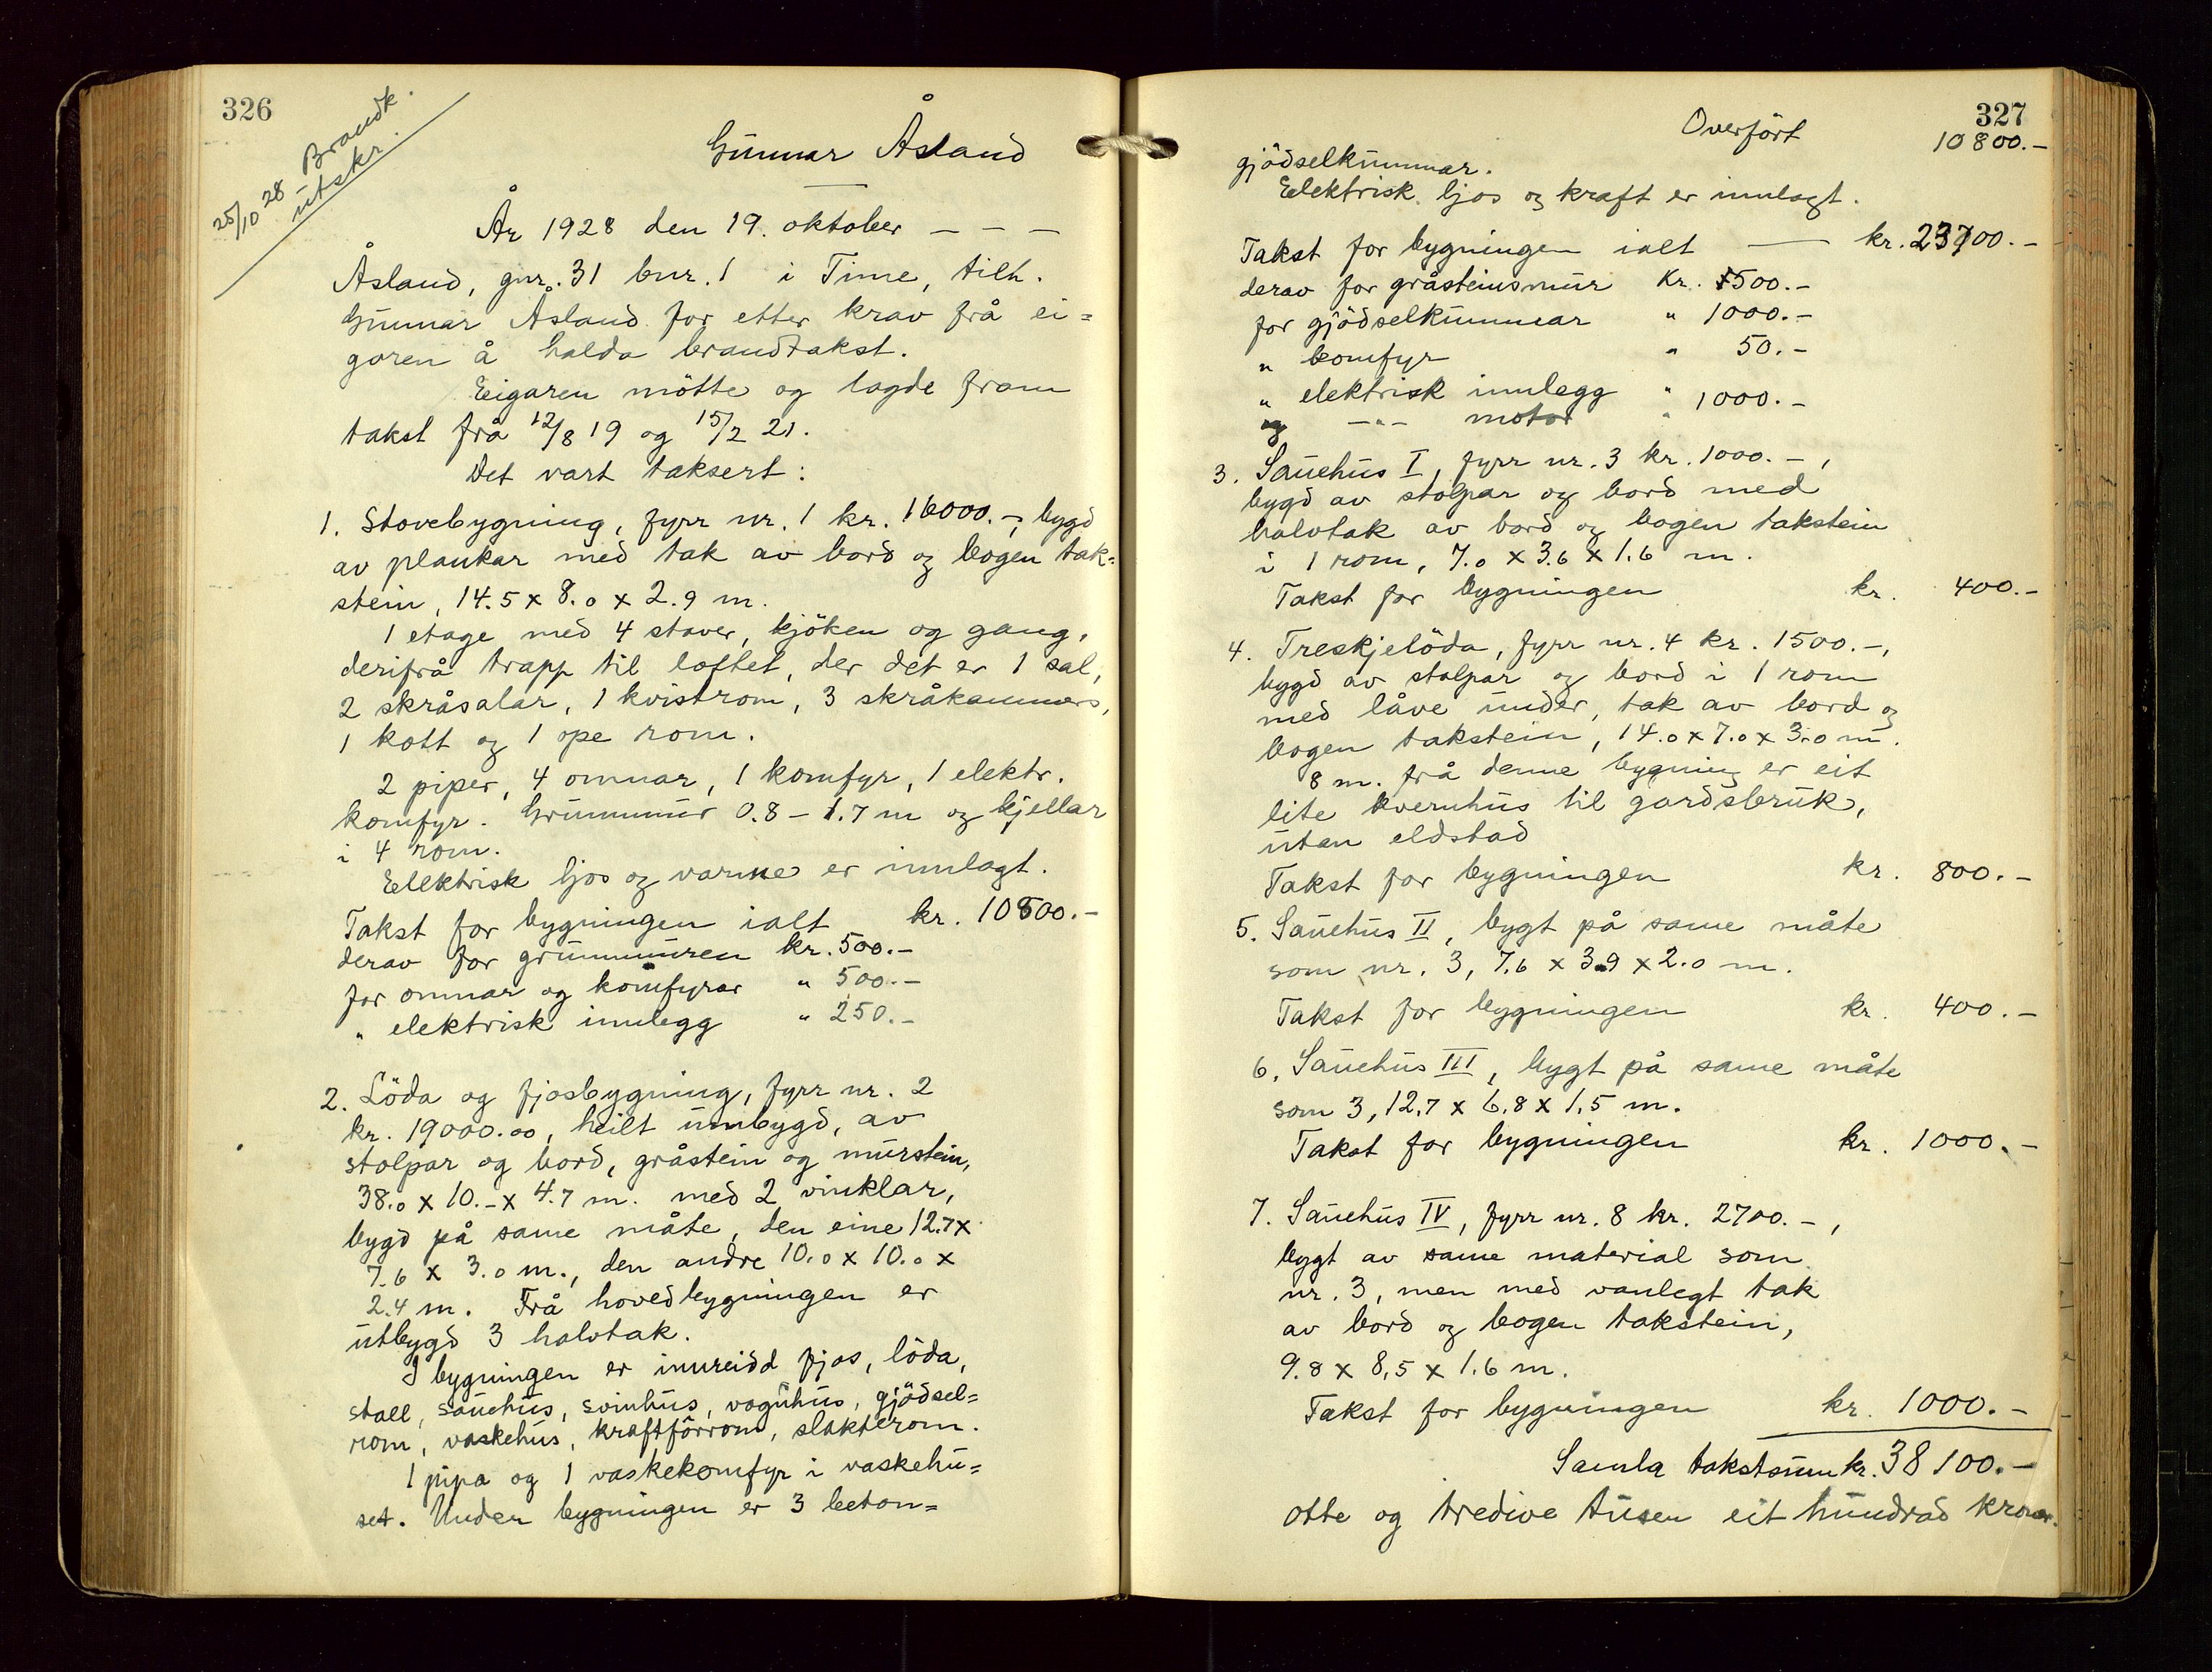 326
25/10 28 Brandk.
utskr.
Gunnar Åsland
År 1928 den 19. oktober - - -
Åsland, gnr. 31 bnr. 1 i Time, tilh.
Gunnar Åsland for etter krav frå ei=
garen å halda brandtakst.
Eigaren mötte og lagde fram
takst frå 12/8 19 og 15/2 21.
Det vart taksert:
1. Stovebygning, fyrr nr. 1 kr. 16000.-, bygd
av plankar med tak av bord og bogen tak=
stein, 14.5 x 8.0 x 2.9 m.
1 etage med 4 stover, kjöken og gang,
derifrå trapp til loftet, der det er 1 sal,
2 skråsalar, 1 kvistrom, 3 skråkammers,
1 kott og 1 ope rom.
2 piper, 4 omnar, 1 komfyr, 1 elektr.
komfyr. Grunnmur 0.8 - 1.7 m og kjellar
i 4 rom.
Elektrisk ljos og varme er innlagt.
Takst for bygningen ialt kr. 10800.-
derav for grunnmuren kr. 500.-
for omnar og komfyrar " 500.-
" elektrisk innlegg " 250.-
2. Löda og fjosbygning, fyrr nr. 2
kr. 19000.00, heilt umbygd, av
stolpar og bord, gråstein og murstein,
38.0 x 10.- x 4.7 m. med 2 vinklar,
bygd på same måte, den eine 12.7 x
7.6 x 3.0 m., den andre 10.0 x 10.0 x
2.4 m. Frå hovedbygningen er
utbygd 3 halvtak.
I bygningen er innreidd fjos, löda,
stall, sauehus, svinhus, vognhus, gjödsel=
rom, vaskehus, kraftfôrrom, slakterom.
1 pipa og 1 vaskekomfyr i vaskehu=
set. Under bygningen er 3 beton=
327
Overfört 10800.-
gjödselkummar.
Elektrisk ljos og kraft er innlagt.
Takst for bygningen ialt — kr. 23700.-
derav for gråsteinsmur Kr. 1500.-
for gjödselkummar " 1000.-
" komfyr " 50.-
" elektrisk innlegg " 1000.-
og -"- motor "
3. Sauehus I, fyrr nr. 3 kr. 1000.-,
bygd av stolpar og bord med
halvtak av bord og bogen takstein
i 1 rom, 7.0 x 3.6 x 1.6 m.
Takst for bygningen kr. 400.-
4. Treskjelöda, fyrr nr. 4 kr. 1500.-,
bygd av stolpar og bord i 1 rom
med låve under, tak av bord og
bogen takstein, 14.0 x 7.0 x 3.0 m.
8 m. frå denne bygning er eit
lite kvernhus til gardsbruk,
utan eldstad
Takst for bygningen kr. 800.-
5. Sauehus II, bygt på same måte
som nr. 3, 7.6 x 3.9 x 2.0 m.
Takst for bygningen kr. 400.-
6. Sauehus III, bygt på same måte
som 3, 12.7 x 6.8 x 1.5 m.
Takst for bygningen kr. 1000.-
7. Sauehus IV, fyrr nr. 8 kr. 2700.-,
bygt av same material som
nr. 3, men med vanlegt tak
av bord og bogen takstein,
9.8 x 8.5 x 1.6 m.
Takst for bygningen kr. 1000.-
Samla takstsum kr. 38100.-
otte og tredive tusen eit hundrad kroner.